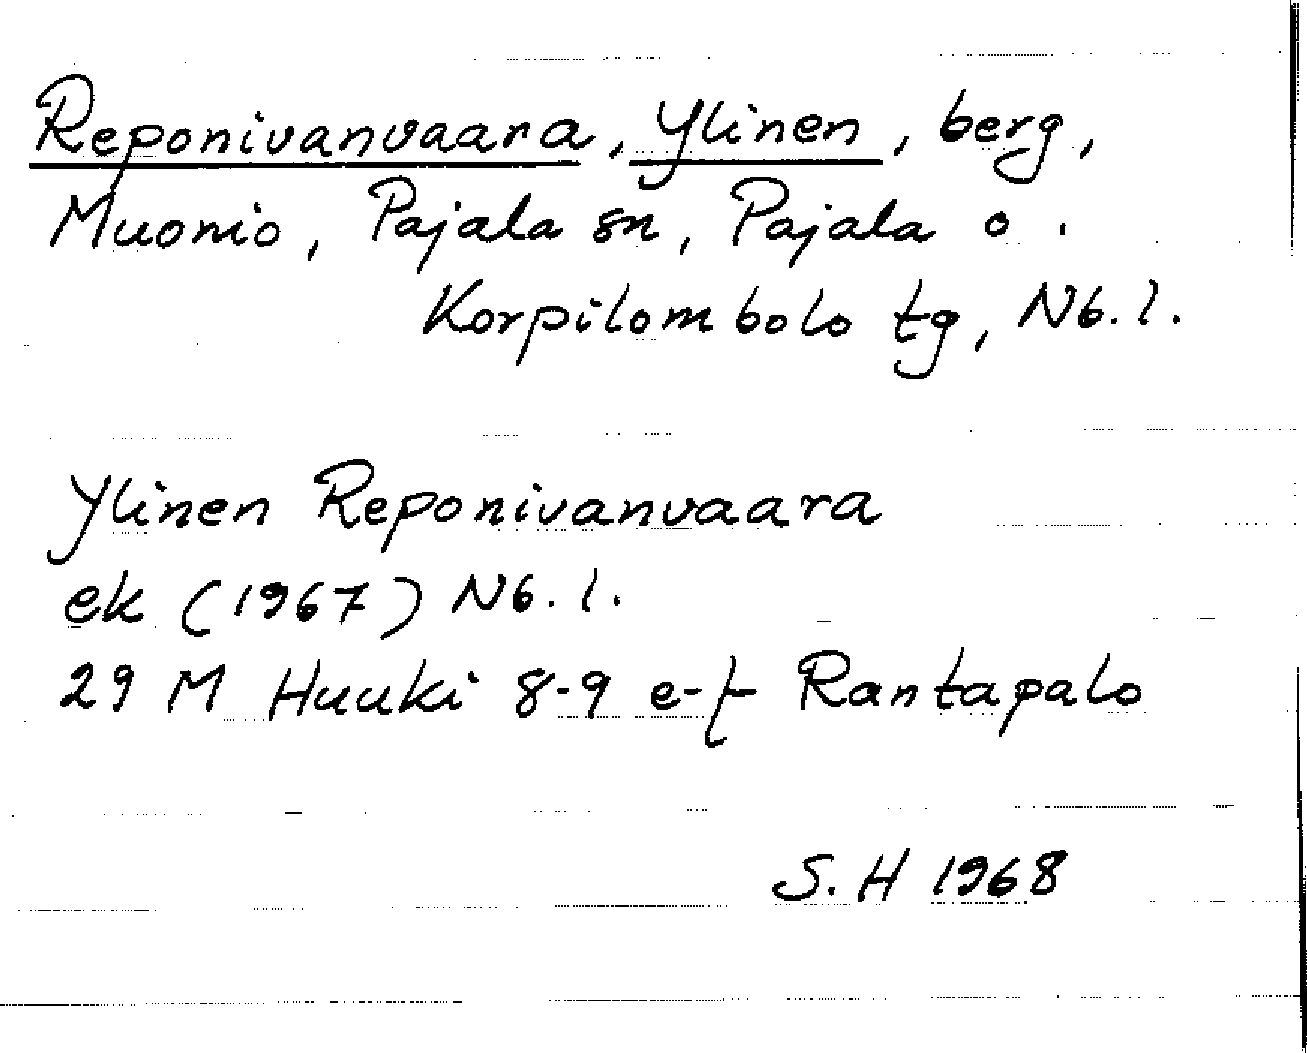 Reponivanvaara, Ylinen, berg,
Muonio, Pajala sn, Pajala o.
Korpilombolo tg, Nb.l.
Ylinen Reponivanvaara
ek (1967) Nb.l.
29 M Huuki 8-9 e-f Rantapalo
S.H 1968